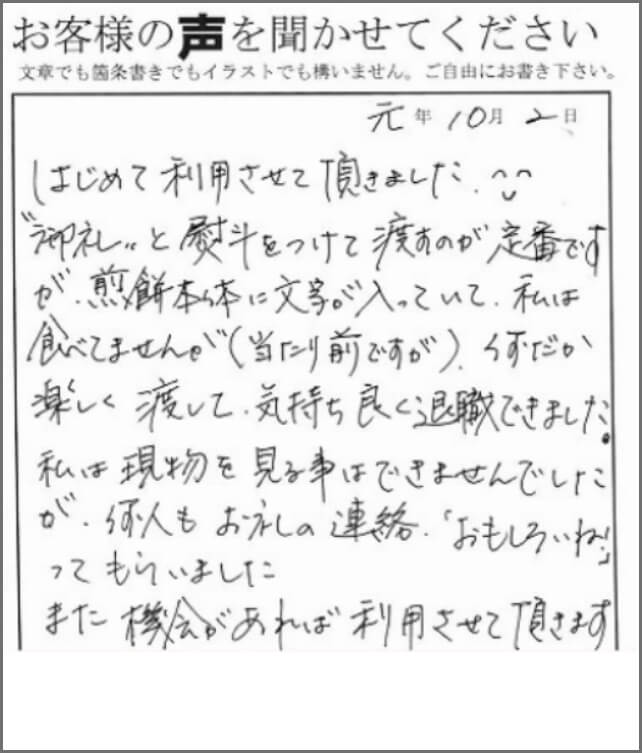 お客様の声を聞かせてください
文章でも箇条書きでもイラストでも構いません。ご自由にお書き下さい。
元年10月2日
はじめて利用させて頂きました.
"御礼"と熨斗をつけて渡すのが定番です
が、煎餅本体に文字が入っていて、私は
食べてませんが(当たり前ですが)、何だか
楽しく渡して、気持ち良く退職できました。
私は現物を見る事はできませんでした
が、何人もお礼の連絡、「おもしろいね!」
ってもらいました
また機会があれば利用させて頂きます